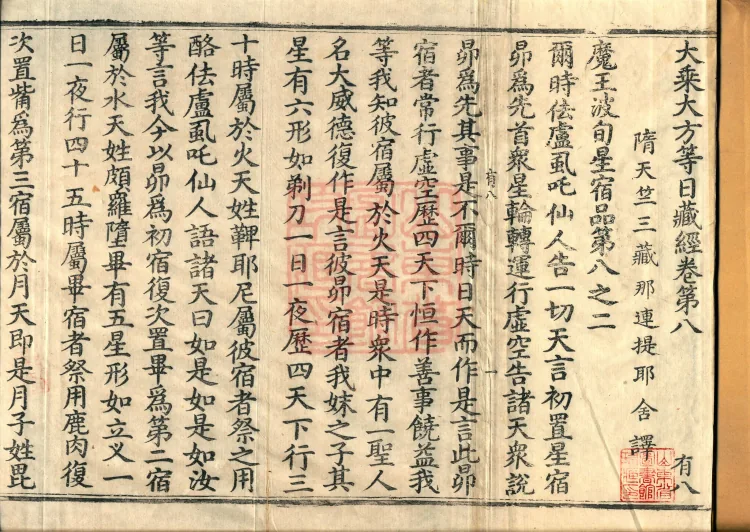 大乘大方等日藏經卷第八 有八
隋天竺三藏那連提耶舍譯
魔王波旬星宿品第八之二
爾時佉盧虱吒仙人告一切天言初置星宿
昴爲先首衆星輪轉運行虛空告諸天衆說
昴爲先其事是不爾時日天而作是言此昴
有八 一
宿者常行虛空歷四天下恒作善事饒益我
等我知彼宿屬於火天是時衆中有一聖人
名大威德復作是言彼昴宿者我妹之子其
星有六形如剃刀一日一夜歷四天下行三
十時屬於火天姓鞞耶尼屬彼宿者祭之用
酪佉盧虱吒仙人語諸天曰如是如是如汝
等言我今以昴爲初宿復次置畢爲第二宿
屬於水天姓頗羅墮畢有五星形如立义一
日一夜行四十五時屬畢宿者祭用鹿肉復
次置觜爲第三宿屬於月天即是月子姓毘